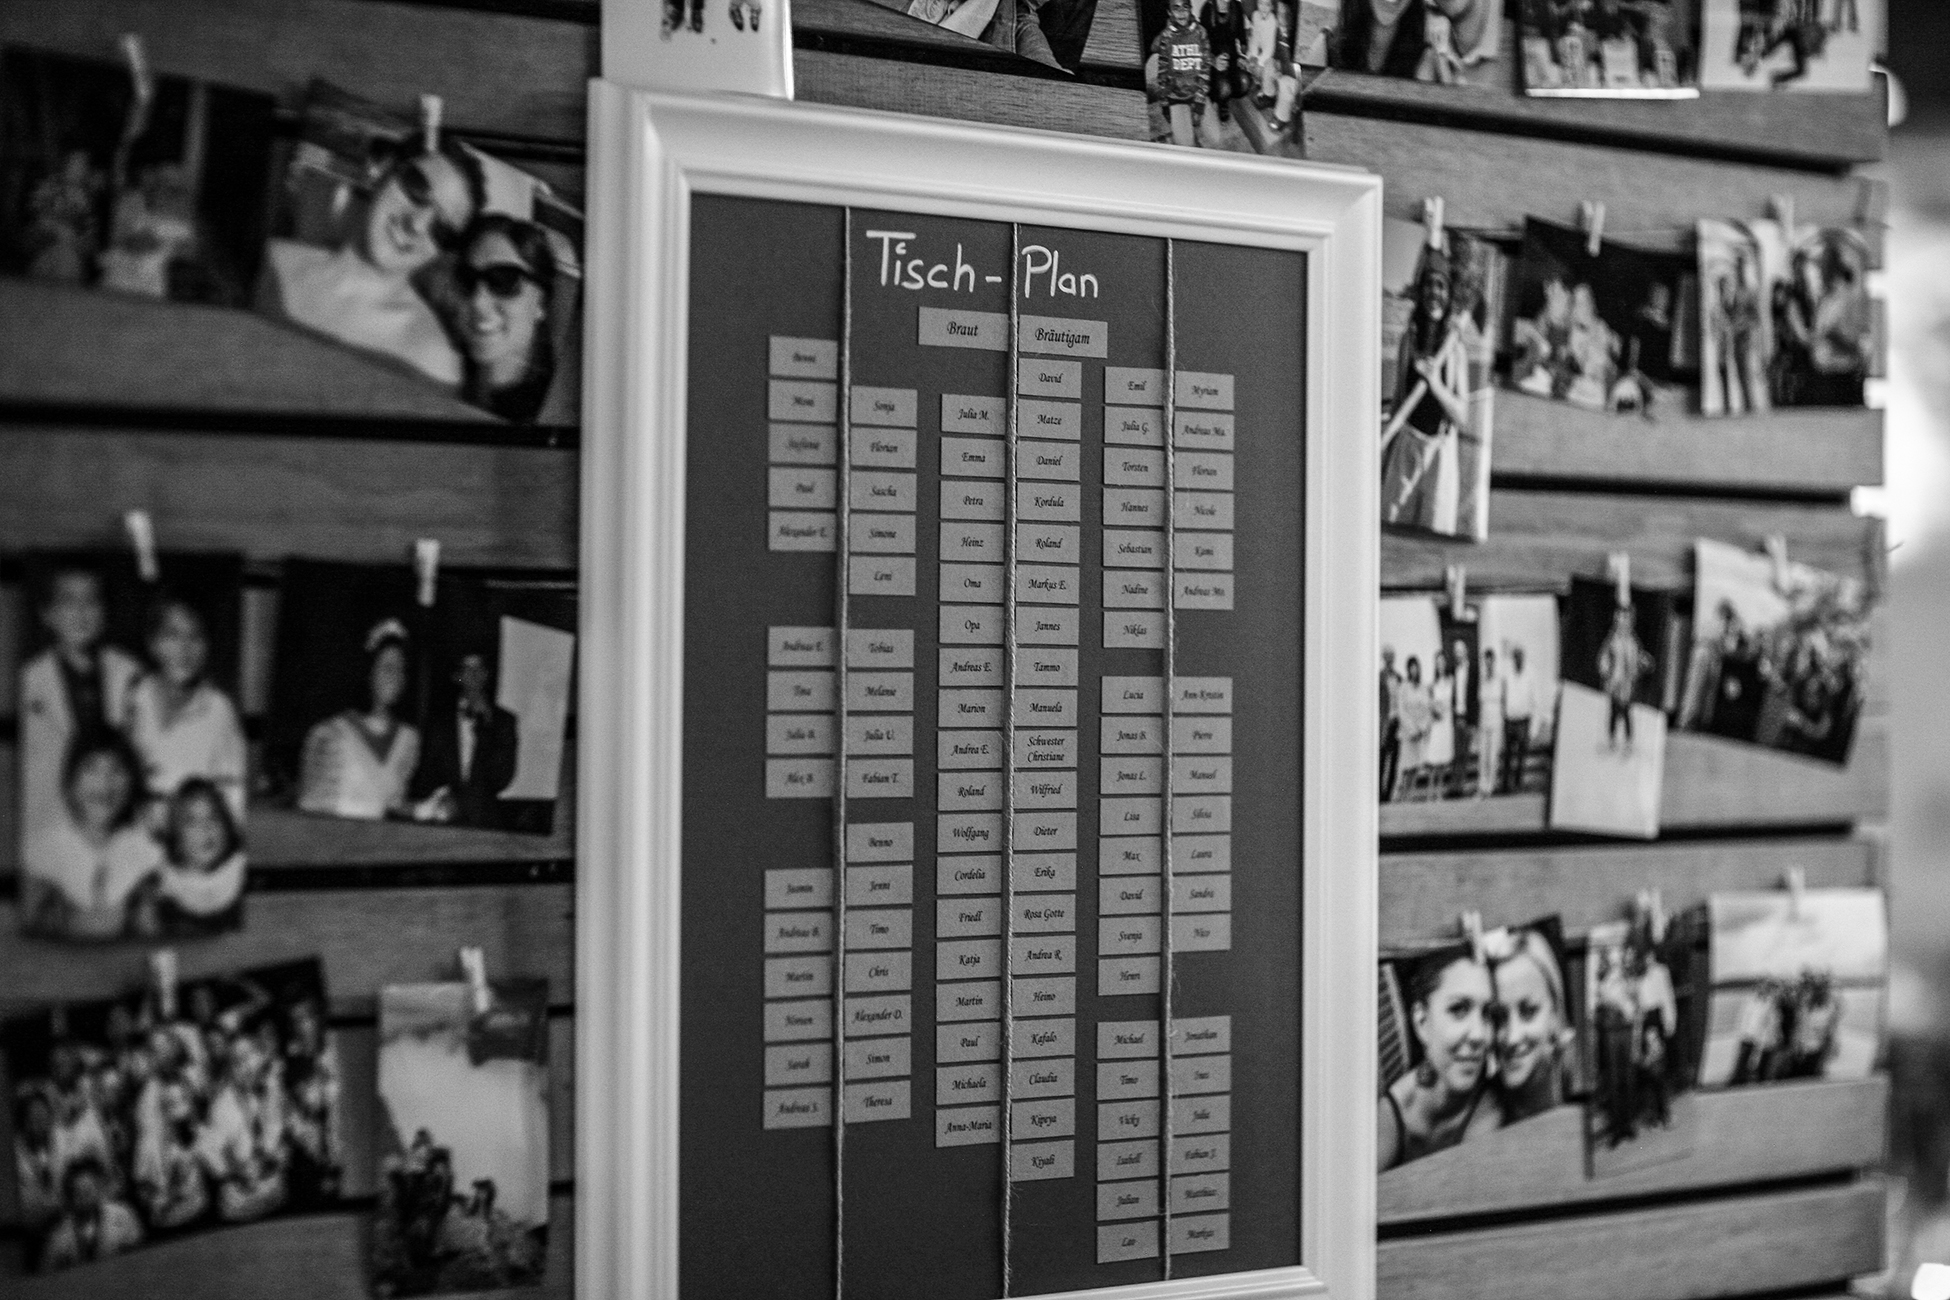 ATHL
DEPT
Tisch - Plan
Braut
Bräutigam
Benni
Moni
Stefanie
Paul
Alexander E.
Andreas E.
Tina
Julia B.
Alex B.
Jasmin
Andreas B.
Martin
Sarah
Andreas S.
Sonja
Florian
Sascha
Simone
Leni
Tobias
Melanie
Julia U.
Fabian T.
Benno
Jenni
Timo
Chris
Alexander D.
Simon
Theresa
Julia M.
Emma
Petra
Heinz
Oma
Opa
Andreas E.
Marion
Andrea E.
Roland
Wolfgang
Cordelia
Friedl
Katja
Martin
Paul
Michaela
Anna-Maria
David
Matze
Daniel
Kordula
Roland
Markus E.
Jannes
Tammo
Manuela
Schwester
Christiane
Wilfried
Dieter
Erika
Rosa Gotte
Andrea R.
Heino
Kafalo
Claudia
Kipeya
Kiyali
Emil
Julia G.
Torsten
Hannes
Sebastian
Nadine
Niklas
Lucia
Jonas B.
Jonas L.
Lisa
Max
David
Svenja
Henri
Michael
Timo
Vicky
Isabell
Julian
Leo
Myriam
Andreas Ma.
Florian
Nicole
Kami
Andreas Mo.
Ann-Kristin
Pierre
Manuel
Silvia
Laura
Sandra
Nico
Jonathan
Ines
Julia
Fabian J.
Matthias
Markus